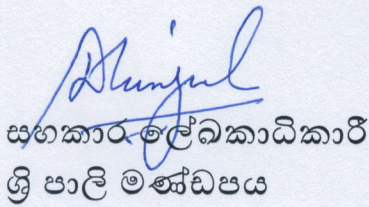 සහකාර ලේඛකාධිකාරී
ශ්‍රි පාලි මණ්ඩපය